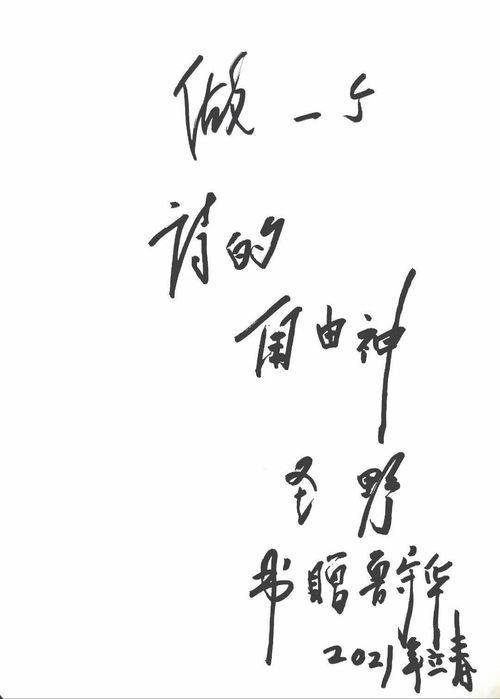 做一个
诗的
自由神
圣野
书赠鲁守华
2021年立春